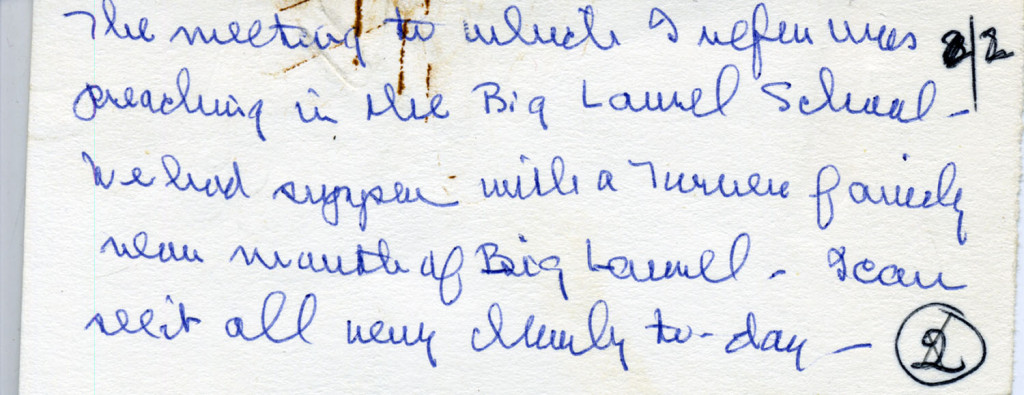 The meeting to which I refer was 2/2
preaching in the Big Laurel School -
We had supper with a Turner family
near mouth of Big Laurel - I can
see it all very clearly to-day -
2